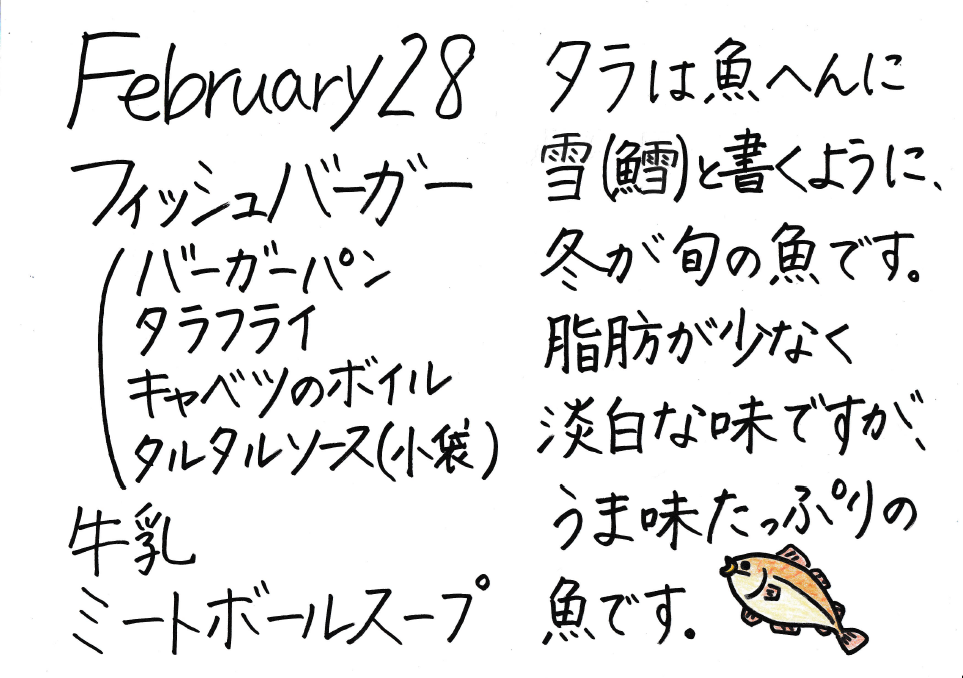 February 28
フィッシュバーガー
バーガーパン
タラフライ
キャベツのボイル
タルタルソース(小袋)
牛乳
ミートボールスープ
タラは魚へんに
雪(鱈)と書くように、
冬が旬の魚です。
脂肪が少なく
淡白な味ですが、
うま味たっぷりの
魚です.